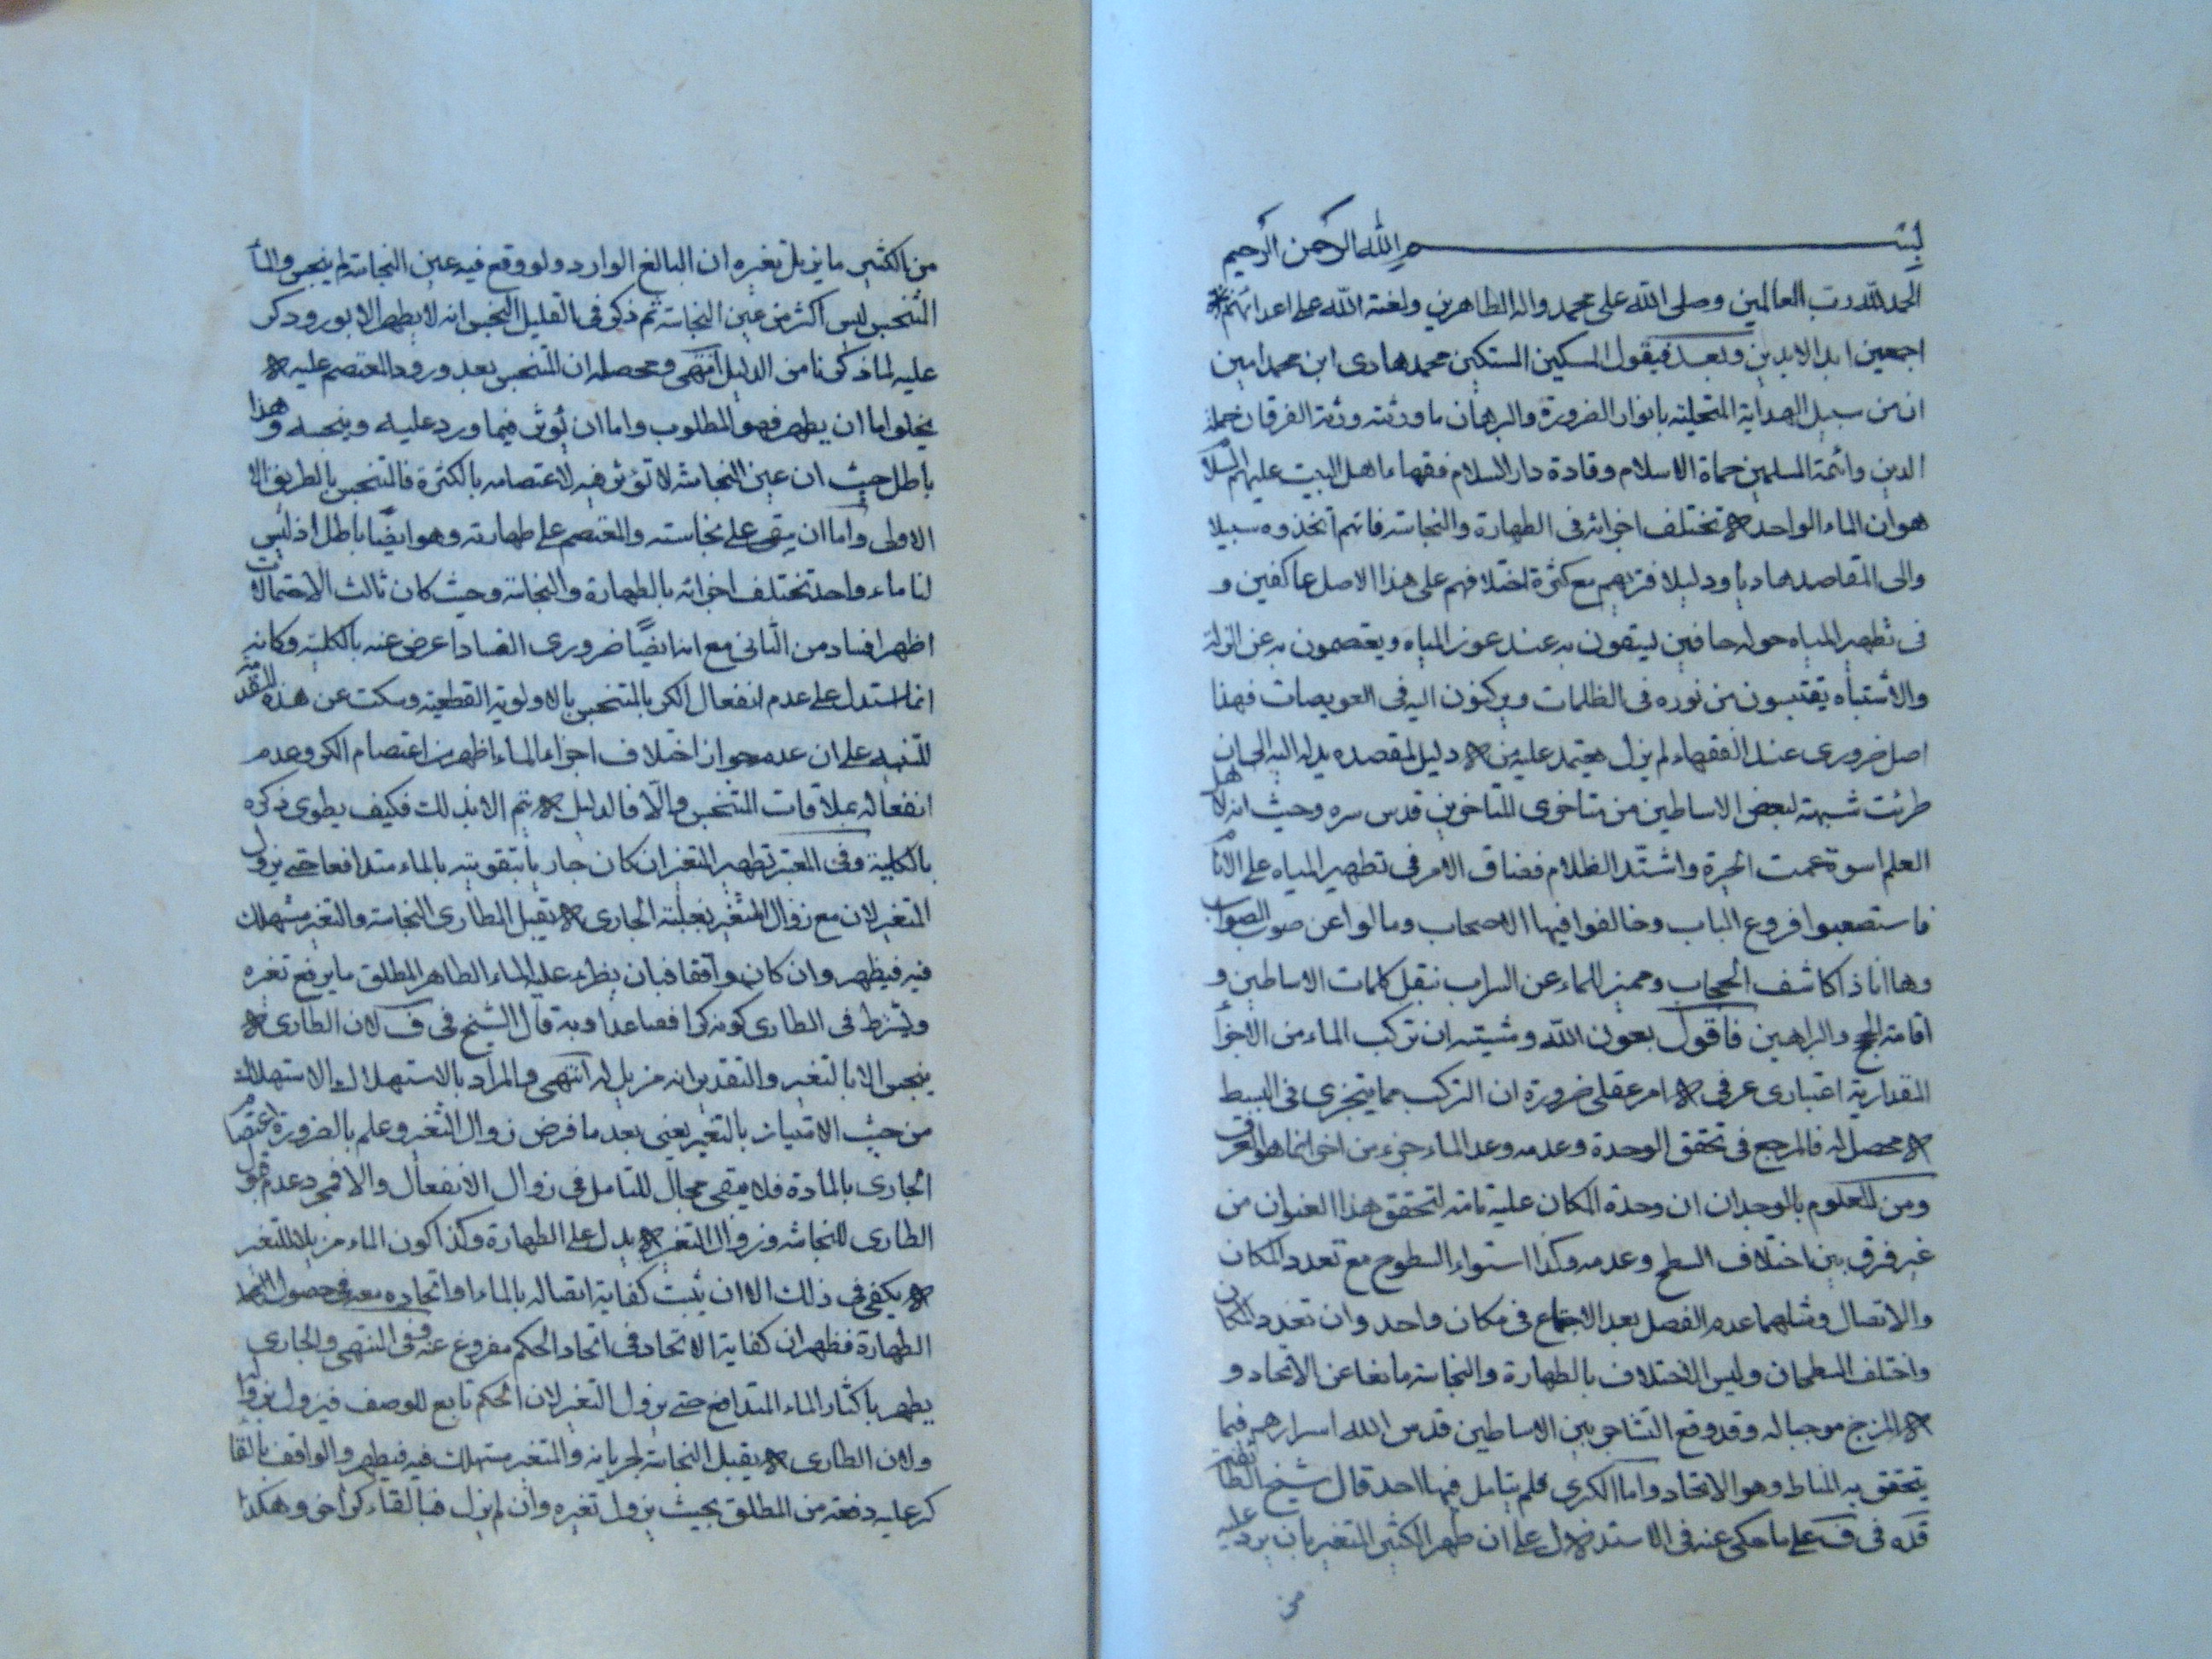 بسم الله الرحمن الرحيم
الحمد لله رب العالمين وصلى الله على محمد واله الطاهرين ولعنة الله على اعدائهم
اجمعين ابد الابدين وبعد فيقول المسكين المستكين محمد هادى ابن محمد امين
ان من سبيل الهداية المتجلية بانوار الضرورة والبرهان ما ورثته ورثة الفرقان حملة
الدين وائمة المسلمين حماة الاسلام وقادة دار السلام فقهاء اهل البيت عليهم السلام
هو ان الماء الواحد لا تختلف اجزائه فى الطهارة والنجاسة فانهم اتخذوه سبيلا
والى المقاصد هاديا ودليلا فتراهم مع كثرة اختلافهم على هذا الاصل عاكفين و
فى تطهير المياه حوله حافين يستقون به عند عوز المياه ويعتصمون به عن الزلة
والاشتباه يقتبسون من نوره فى الظلمات ويركنون اليه فى العويصات فهذا
اصل ضرورى عند الفقهاء لم يزل يعتمد عليه من لا دليل لمقصده يدله اليه الى ان
طرئت شبهة لبعض الاساطين من متاخرى المتاخرين قدس سره وحيث انه لاهل
العلم اسوة عمت الحيرة واشتد الظلام فضاق الامر فى تطهير المياه على الانام
فاستصعبوا فروع الباب وخالفوا فيها الاصحاب ومالوا عن صوب الصواب
وها انا ذا كاشف الحجاب ومميز الماء عن السراب بنقل كلمات الاساطين و
اقامة الحجج والبراهين فاقول بعون الله ومشيته ان تركب الماء من الاجزاء
المقدارية اعتبارى عرفى لا امر عقلى ضرورة ان التركب مما يتجزى فى البسيط
لا محصل له فالمرجع فى تحقق الوحدة وعدمه وعد الماء جزء من اخر انما هو العرف
ومن المعلوم بالوجدان ان وحدة المكان علية تامة لتحقق هذا العنوان من
غير فرق بين اختلاف السطح وعدمه وكذا استواء السطوح مع تعدد المكان
والاتصال ومثلهما عدم الفصل بعد الاجتماع فى مكان واحد وان تعدد المكان
واختلف السطحان وليس الاختلاف بالطهارة والنجاسة مانعا عن الاتحاد و
لا المزج موجبا له وقد وقع التشاجر بين الاساطين قدس الله اسرارهم فيما
يتحقق به المناط وهو الاتحاد واما الكبرى فلم يتامل فيها احد قال شيخ الطائفة
قده فى ف على ما حكى عنه فى الاستدلال على ان طهر الكثير المتغير بان يرد عليه
من
من الكثير ما يزيل تغيره ان البالغ الوارد ولو وقع فيه عين النجاسة لم ينجس والماء
المتنجس ليس اكثر من عين النجاسة ثم ذكر فى القليل النجس انه لا يطهر الا بورود كر
عليه لما ذكرنا من الدليل انتهى ومحصله ان المتنجس بعد ورود المعتصم عليه لا
يخلوا ما ان يطهر فهو المطلوب واما ان يؤثر فيما ورد عليه وينجسه وهذا
باطل حيث ان عين النجاسة لا تؤثر فيه لاعتصامه بالكثرة فالمتنجس بالطريق الا
الاولى واما ان يبقى على نجاسته والمعتصم على طهارته وهو ايضا باطل اذ ليس
لنا ماء واحد تختلف اجزائه بالطهارة والنجاسة وحيث كان ثالث الاحتمالات
اظهر افساد من الثانى مع انه ايضا ضرورى الفساد اعرض عنه بالكلية وكانه
انما استدل على عدم انفعال الكر بالمتنجس بالاولوية القطعية وسكت عن هذه المقدمة
للتنبيه على ان عدم جواز اختلاف اجزاء الماء اظهر من اعتصام الكر وعدم
انفعاله بملاقات المتنجس والا فالدليل لا يتم الا بذلك فكيف يطوى ذكره
بالكلية وفى المعتبر تطهير المتغير ان كان جاريا بتقويته بالماء متدافعا حتى يزول
المتغير لان مع زوال المتغير بغلبة الجارى لا يقبل الطارى النجاسة والمتغير مستهلك
فيه فيطهر وان كان واقفا فبان يطرء عليه الماء الطاهر المطلق ما يرفع تغيره
ويشترط فى الطارى كونه كرا فصاعدا وبه قال الشيخ فى ف لان الطارى لا
ينجس الا بالتغير والتقدير انه مزيل له انتهى والمراد بالاستهلاك الاستهلاك
من حيث الامتياز بالتغير يعنى بعد ما فرض زوال التغير وعلم بالضرورة اعتصام
الجارى بالمادة فلا يبقى مجال للتامل فى زوال الانفعال والا فمجرد عدم قبول
الطارى للنجاسة وزوال التغير لا يدل على الطهارة وكذا كون الماء مزيلا للتغير
لا يكفى فى ذلك الا ان يثبت كفاية اتصاله بالماء او اتحاده معه فى حصول
الطهارة فظهر ان كفاية الاتحاد فى اتحاد الحكم مفروغ عنه وفى المنتهى والجارى
يطهر باكثار الماء المتدافع حتى يزول التغير لان الحكم تابع للوصف فيزول بزواله
ولان الطارى لا يقبل النجاسة لجريانه والمتغير مستهلك فيه فيطهر والواقف بالقاء
كر عليه دفعة من المطلق بحيث يزول تغيره وان لم يزل فبالقاء كر اخر وهكذا